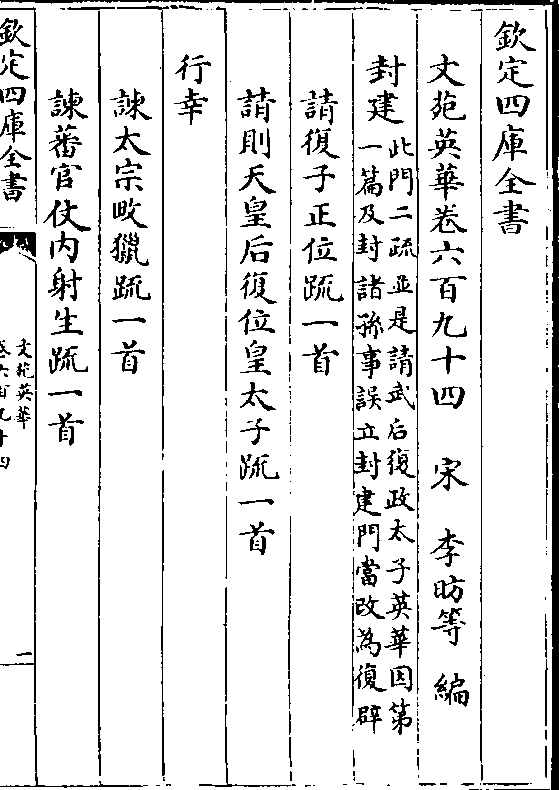 欽定四庫全書
文苑英華卷六百九十四　宋　李昉等　編
封建此門二疏並是請武后復政太子英華因第
一篇及封諸孫事誤立封建門當改為復辟
請復子正位疏一首
請則天皇后復位皇太子疏一首
行幸
諫太宗畋獵疏一首
諫蕃官仗內射生疏一首
欽定四庫全書
文苑英華
卷六百九十四
一